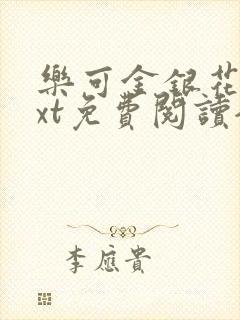 樂可金銀花
xt免費閱讀
李應貴